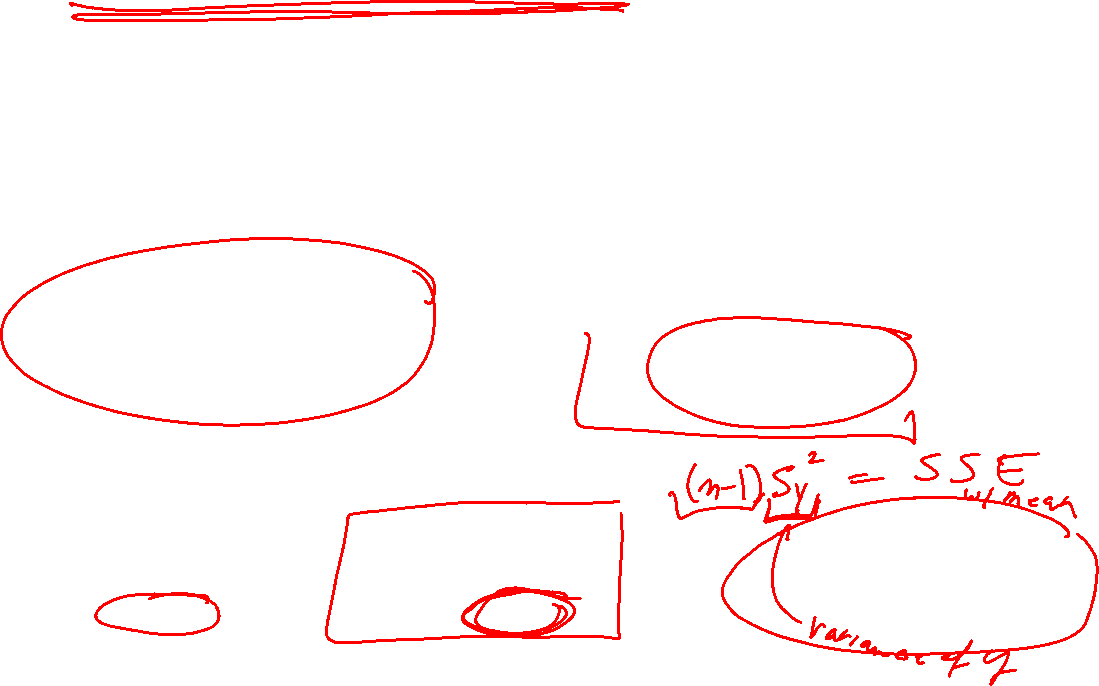 (n-1) Sy² = SSE
w/ mean
variance of y